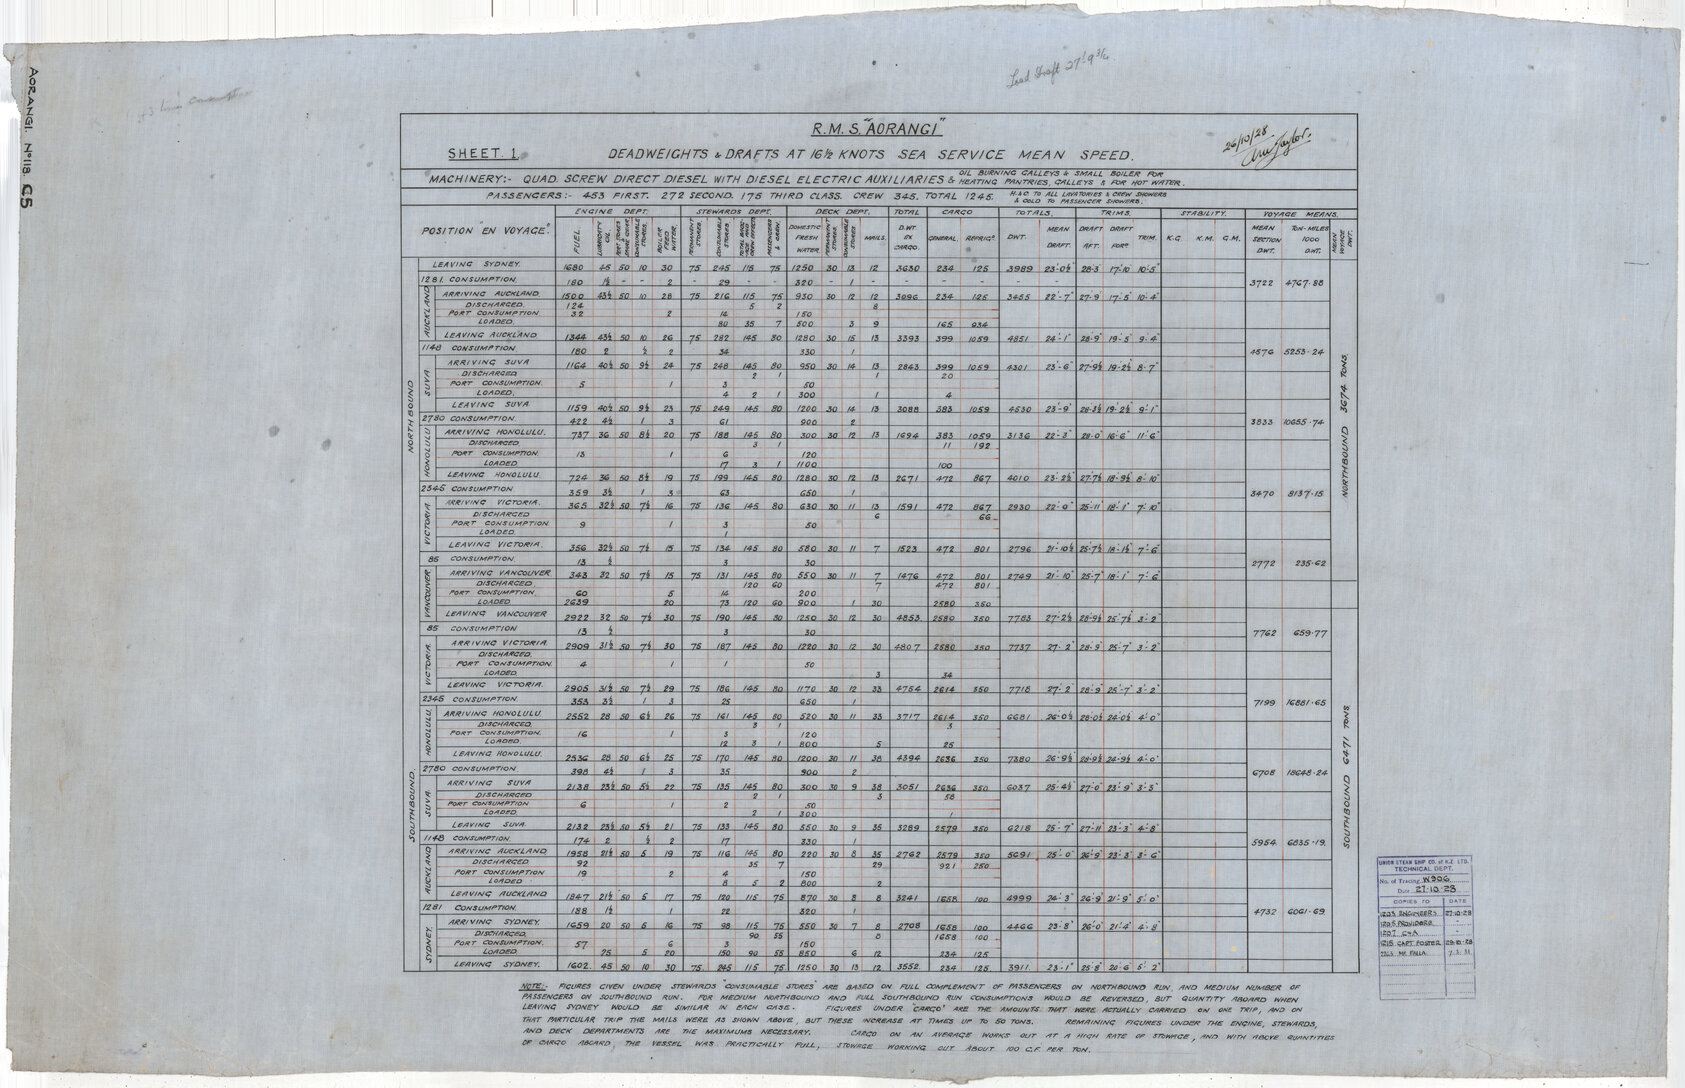 AORANGI. Nº118. C5
Load Draft 27'·9¾
R.M.S. "AORANGI"
26/10/28
SHEET. 1.
DEADWEIGHTS & DRAFTS AT 16½ KNOTS SEA SERVICE MEAN SPEED.
MACHINERY:- QUAD. SCREW DIRECT DIESEL WITH DIESEL ELECTRIC AUXILIARIES & OIL BURNING GALLEYS & SMALL BOILER FOR HEATING PANTRIES, GALLEYS & FOR HOT WATER.
PASSENGERS:- 453 FIRST. 272 SECOND. 175 THIRD CLASS. CREW 345. TOTAL 1245. H.&C. TO ALL LAVATORIES & CREW SHOWERS & COLD TO PASSENGER SHOWERS.
POSITION "EN VOYAGE".
ENGINE DEPT. STEWARDS DEPT. DECK DEPT. TOTAL CARGO TOTALS. TRIMS. STABILITY. VOYAGE MEANS.
FUEL. LUBRICATING OIL. CONSUMABLE STORES. BOILER FEED WATER. PERMANENT STORES. CONSUMABLE STORES. PASSENGERS & CREW. DOMESTIC FRESH WATER. PERMANENT STORES. CONSUMABLE STORES. MAILS. D.W.T EX CARGO. GENERAL. REFRIG. DWT. MEAN DRAFT. DRAFT AFT. DRAFT FORD TRIM. K.G. K.M. G.M. MEAN SECTION DWT. TON-MILES 1000 DWT. MEAN VOYAGE DWT.
NORTH BOUND
LEAVING SYDNEY. 1680 45 50 10 30 75 245 115 75 1250 30 13 12 3630 234 125 3989 23'·0½" 28·3 17'·10 10·5"
1281. CONSUMPTION. 180 1½ - - 2 - 29 - - 320 - 1 - 3722 4767·88
AUCKLAND
ARRIVING AUCKLAND. 1500 43½ 50 10 28 75 216 115 75 930 30 12 12 3096 234 125 3455 22'·7" 27·9 17'·5 10·4"
DISCHARGED. 124 5 2 8
PORT CONSUMPTION. 32 2 14 150
LOADED. 80 35 7 500 3 9 165 934
LEAVING AUCKLAND 1344 43½ 50 10 26 75 282 145 80 1280 30 15 13 3393 399 1059 4851 24'·1" 28·9 19·5 9·4"
1148 CONSUMPTION 180 2 ½ 2 34 330 1 4576 5253·24
SUVA
ARRIVING SUVA 1164 40½ 50 9½ 24 75 248 145 80 950 30 14 13 2843 399 1059 4301 23'·6" 27·9½ 19·2½ 8·7"
DISCHARGED 2 1 1 20
PORT CONSUMPTION. 5 1 3 50
LOADED. 4 2 1 300 1 4
LEAVING SUVA 1159 40½ 50 9½ 23 75 249 145 80 1200 30 14 13 3088 383 1059 4530 23'·9" 28·3½ 19·2½ 9·1"
2780 CONSUMPTION. 422 4½ 1 3 61 900 2 3833 10655·74
HONOLULU
ARRIVING HONOLULU. 737 36 50 8½ 20 75 188 145 80 300 30 12 13 1694 383 1059 3136 22·3" 28·0 16·6" 11'·6"
DISCHARGED. 3 1 11 192
PORT CONSUMPTION. 13 1 6 120
LOADED 17 3 1 1100 100
LEAVING HONOLULU. 724 36 50 8½ 19 75 199 145 80 1280 30 12 13 2671 472 867 4010 23·2½ 27·7½ 18·9½ 8·10"
2345 CONSUMPTION 359 3½ 1 3 63 650 1 3470 8137·15
VICTORIA.
ARRIVING VICTORIA. 365 32½ 50 7½ 16 75 136 145 80 630 30 11 13 1591 472 867 2930 22·0" 25·11 18·1" 7·10"
DISCHARGED 6 66
PORT CONSUMPTION 9 1 3 50
LOADED. 1
LEAVING VICTORIA. 356 32½ 50 7½ 15 75 134 145 80 580 30 11 7 1523 472 801 2796 21'·10½ 25·7½ 18·1½ 7'·6"
85 CONSUMPTION 13 ½ 3 30 2772 235·62
VANCOUVER.
ARRIVING VANCOUVER. 343 32 50 7½ 15 75 131 145 80 550 30 11 7 1476 472 801 2749 21'·10" 25·7" 18·1" 7·6"
DISCHARGED. 120 60 7 472 801
PORT CONSUMPTION 60 5 14 200
LOADED 2639 20 73 120 60 900 1 30 2580 350
LEAVING VANCOUVER 2922 32 50 7½ 30 75 190 145 80 1250 30 12 30 4853 2580 350 7783 27·2½ 28·9½ 25·7½ 3·2"
SOUTHBOUND.
85 CONSUMPTION 13 ½ 3 30 7762 659·77
VICTORIA.
ARRIVING VICTORIA. 2909 31½ 50 7½ 30 75 187 145 80 1220 30 12 30 4807 2580 350 7737 27·2" 28·9 25·7" 3·2"
DISCHARGED.
PORT CONSUMPTION. 4 1 1 50
LOADED. 3 34
LEAVING VICTORIA. 2905 31½ 50 7½ 29 75 186 145 80 1170 30 12 33 4754 2614 350 7718 27·2" 28·9 25·7" 3·2"
2345 CONSUMPTION. 353 3½ 1 3 25 650 1 7199 16881·65
HONOLULU.
ARRIVING HONOLULU. 2552 28 50 6½ 26 75 161 145 80 520 30 11 33 3717 2614 350 6681 26·0½ 28·0½ 24·0½ 4'·0"
DISCHARGED. 3 1 3
PORT CONSUMPTION. 16 1 3 120
LOADED. 12 3 1 800 5 25
LEAVING HONOLULU. 2536 28 50 6½ 25 75 170 145 80 1200 30 11 38 4394 2636 350 7380 26·9½ 28·9½ 24·9½ 4·0"
2780 CONSUMPTION 398 4½ 1 3 35 900 2 6708 18648·24
SUVA.
ARRIVING SUVA 2138 23½ 50 5½ 22 75 135 145 80 300 30 9 38 3051 2636 350 6037 25·4½ 27·0" 23·9" 3·3"
DISCHARGED 2 1 3 58
PORT CONSUMPTION 6 1 2 50
LOADED. 2 1 300 1
LEAVING SUVA. 2132 23½ 50 5½ 21 75 133 145 80 550 30 9 35 3289 2579 350 6218 25·7" 27·11 23·3" 4·8"
1148 CONSUMPTION. 174 2 ½ 2 17 330 1 5954 6835·19
AUCKLAND
ARRIVING AUCKLAND. 1958 21½ 50 5 19 75 116 145 80 220 30 8 35 2762 2579 350 5691 25·0" 26·9" 23·3" 3·6"
DISCHARGED 92 35 7 29 921 250
PORT CONSUMPTION 19 2 4 150
LOADED 8 5 2 800 2
LEAVING AUCKLAND 1847 21½ 50 5 17 75 120 115 75 870 30 8 8 3241 1658 100 4999 24·3" 26·9" 21·9" 5·0"
1281 CONSUMPTION. 188 1½ 1 22 320 1 4732 6061·69
SYDNEY.
ARRIVING SYDNEY. 1659 20 50 5 16 75 98 115 75 550 30 7 8 2708 1658 100 4466 23·8" 26·0" 21·4" 4·8"
DISCHARGED. 90 55 8 1658 100
PORT CONSUMPTION 57 6 3 150
LOADED. 25 5 20 150 90 55 850 6 12 234 125
LEAVING SYDNEY. 1602. 45 50 10 30 75 245 115 75 1250 30 13 12 3552. 234 125 3911. 23·1" 25·8" 20·6 5·2"
NORTHBOUND 3674 TONS.
SOUTHBOUND 6471 TONS.
NOTE:- FIGURES GIVEN UNDER STEWARDS "CONSUMABLE STORES" ARE BASED ON FULL COMPLEMENT OF PASSENGERS ON NORTHBOUND RUN, AND MEDIUM NUMBER OF
PASSENGERS ON SOUTHBOUND RUN. FOR MEDIUM NORTHBOUND AND FULL SOUTHBOUND RUN CONSUMPTIONS WOULD BE REVERSED, BUT QUANTITY ABOARD WHEN
LEAVING SYDNEY WOULD BE SIMILAR IN EACH CASE. FIGURES UNDER "CARGO" ARE THE AMOUNTS THAT WERE ACTUALLY CARRIED ON ONE TRIP, AND ON
THAT PARTICULAR TRIP THE MAILS WERE AS SHOWN ABOVE, BUT THESE INCREASE AT TIMES UP TO 50 TONS. REMAINING FIGURES UNDER THE ENGINE, STEWARDS,
AND DECK DEPARTMENTS ARE THE MAXIMUMS NECESSARY. CARGO ON AN AVERAGE WORKS OUT AT A HIGH RATE OF STOWAGE, AND WITH ABOVE QUANTITIES
OF CARGO ABOARD, THE VESSEL WAS PRACTICALLY FULL, STOWAGE WORKING OUT ABOUT 100 C.F. PER TON.
UNION STEAM SHIP CO. of N.Z. LTD.
TECHNICAL DEPT.
No. of Tracing W906
Date 27·10·28
COPIES TO DATE
1203 ENGINEERS 27·10·28
1205 PROVIDORE "
1207 C4A "
1215 CAPT FOSTER 29·10·28